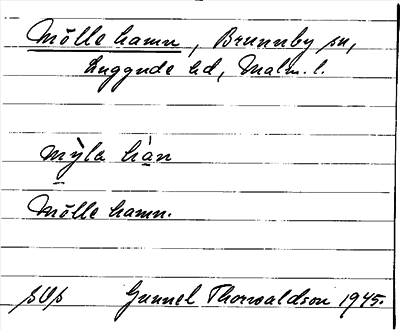 Mölle hamn, Brunnby sn,
Luggude hd, Malm. l.
mỳla hàn
Mölle hamn.
Gunnel Thorwaldson 1945.